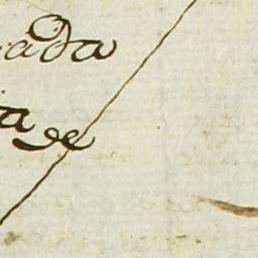 ada
a de